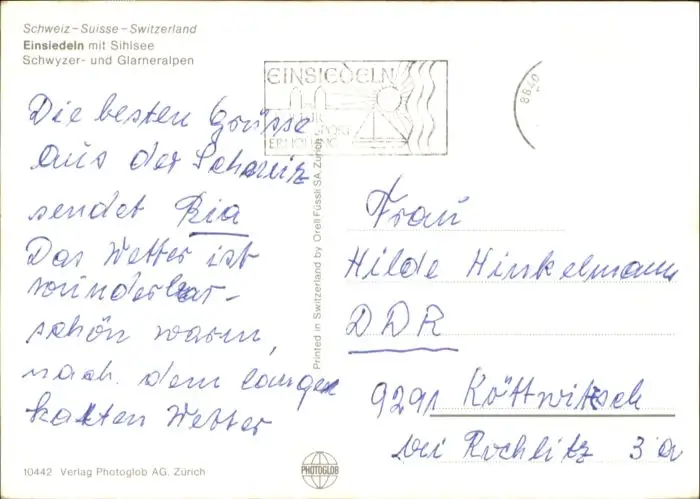 Schweiz-Suisse-Switzerland
Einsiedeln mit Sihlsee
Schwyzer- und Glarneralpen
EINSIEDELN
SPORT
ERHOLUNG
8840
Die besten Grüsse
aus der Schweiz
sendet Ria
Das Wetter ist
wunderbar-
schön warm,
nach dem langen
kalten Wetter
Printed in Switzerland by Orell Füssli SA. Zürich
Frau
Hilde Hinkelmann
DDR
9291 Köttwitzsch
bei Rochlitz 3a
10442 Verlag Photoglob AG. Zürich
PHOTOGLOB